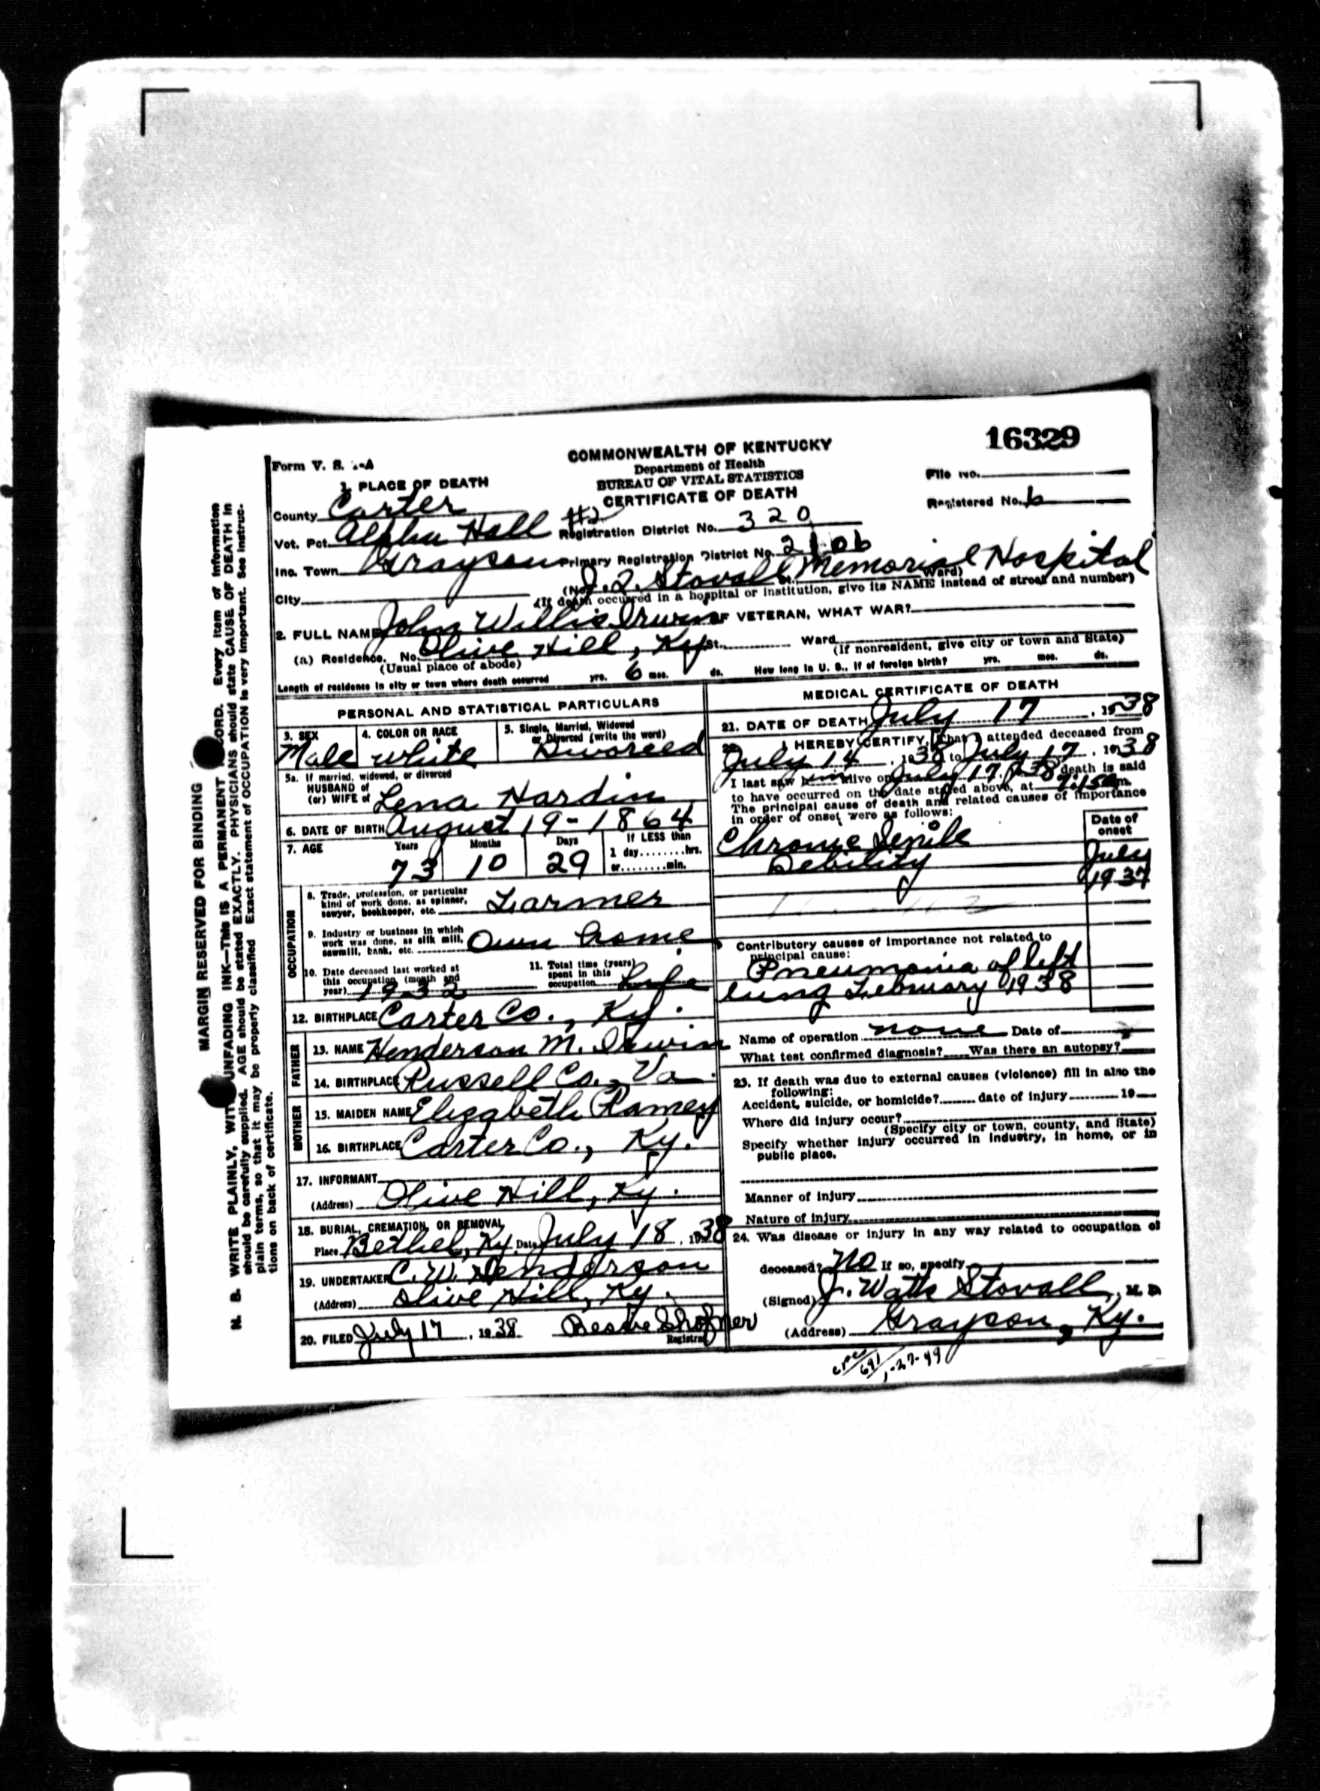 16329
Form V. S. 1-A
COMMONWEALTH OF KENTUCKY
Department of Health
BUREAU OF VITAL STATISTICS
CERTIFICATE OF DEATH
File No.
Registered No. 6
1. PLACE OF DEATH
County Carter
Vot. Pct. Alpha Hall #2 Registration District No. 320
Inc. Town Grayson Primary Registration District No. 2106
City (No. J. Q. Stovall Memorial Hospital Ward)
(If death occurred in a hospital or institution, give its NAME instead of street and number)
2. FULL NAME John Willis Irwin IF VETERAN, WHAT WAR?
(a) Residence. No. Olive Hill, Ky St. Ward
(Usual place of abode) (If nonresident, give city or town and State)
Length of residence in city or town where death occurred yrs. 6 mos. ds. How long in U. S., if of foreign birth? yrs. mos. ds.
PERSONAL AND STATISTICAL PARTICULARS
3. SEX Male
4. COLOR OR RACE white
5. Single, Married, Widowed or Divorced (write the word) Divorced
5a. If married, widowed, or divorced
HUSBAND of
(or) WIFE of Lena Hardin
6. DATE OF BIRTH August 19-1864
7. AGE Years Months Days If LESS than
73 10 29 1 day........hrs.
or........min.
OCCUPATION
8. Trade, profession, or particular
kind of work done, as spinner,
sawyer, bookkeeper, etc. Farmer
9. Industry or business in which
work was done, as silk mill,
sawmill, bank, etc. Own home
10. Date deceased last worked at
this occupation (month and
year) 1932
11. Total time (years)
spent in this
occupation Life
12. BIRTHPLACE Carter Co., Ky.
FATHER
13. NAME Henderson M. Irwin
14. BIRTHPLACE Russell Co., Va.
MOTHER
15. MAIDEN NAME Elizabeth Ramey
16. BIRTHPLACE Carter Co., Ky.
17. INFORMANT
(Address) Olive Hill, Ky.
18. BURIAL, CREMATION, OR REMOVAL
Place Bethel, Ky. Date July 18, 1938
19. UNDERTAKER C. W. Henderson
(Address) Olive Hill, Ky.
20. FILED July 17, 1938 Bessie Shofner
Registrar
MEDICAL CERTIFICATE OF DEATH
21. DATE OF DEATH July 17, 1938
22. I HEREBY CERTIFY, That I attended deceased from
July 14, 1938 to July 17, 1938
I last saw him alive on July 17, 1938 death is said
to have occurred on the date stated above, at m.
The principal cause of death and related causes of importance
in order of onset were as follows:
Date of
onset
Chronic Senile
Debility
July
1937
Contributory causes of importance not related to
principal cause:
Pneumonia of left
lung February 1938
Name of operation none Date of
What test confirmed diagnosis? Was there an autopsy?
23. If death was due to external causes (violence) fill in also the
following:
Accident, suicide, or homicide? date of injury 19
Where did injury occur?
(Specify city or town, county, and State)
Specify whether injury occurred in industry, in home, or in
public place.
Manner of injury
Nature of injury
24. Was disease or injury in any way related to occupation of
deceased? No If so, specify
(Signed) J. Watts Stovall, M. D.
(Address) Grayson, Ky.
1-27-49
MARGIN RESERVED FOR BINDING
N. B. WRITE PLAINLY, WITH UNFADING INK—THIS IS A PERMANENT RECORD. Every item of information
should be carefully supplied. AGE should be stated EXACTLY. PHYSICIANS should state CAUSE OF DEATH in
plain terms, so that it may be properly classified. Exact statement of OCCUPATION is very important. See instruc-
tions on back of certificate.